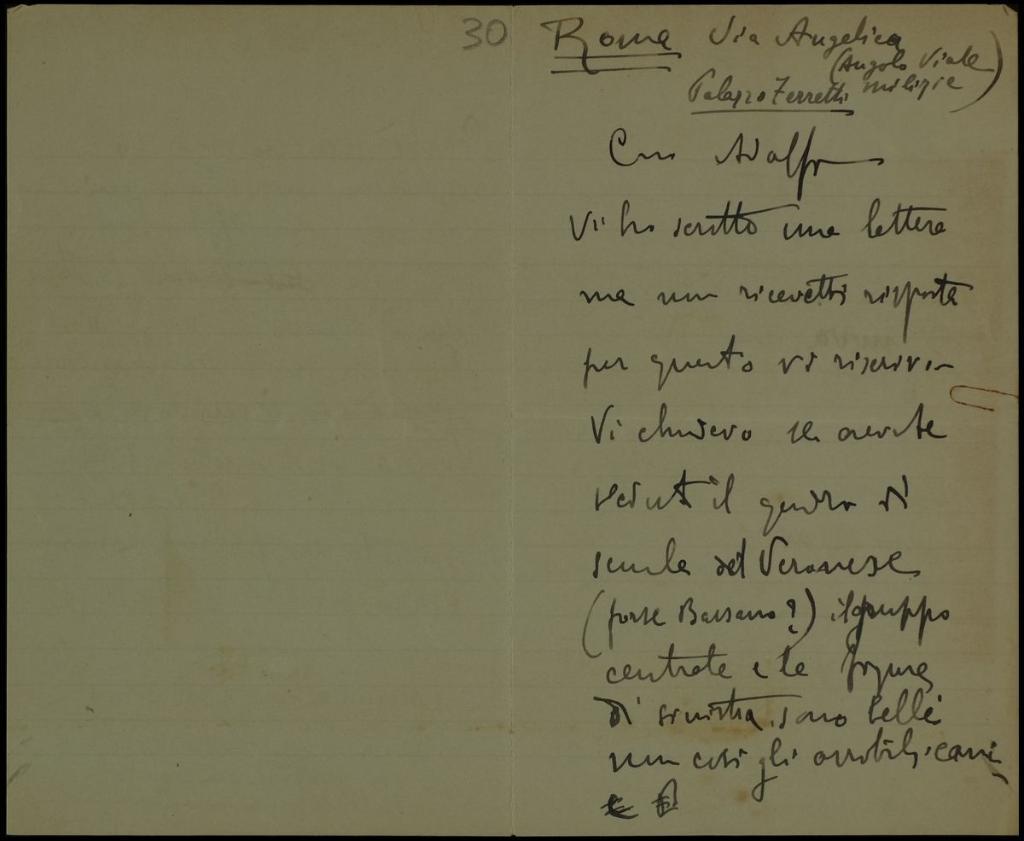 30
Roma Via Angelica
(Angolo Viale
milizie)
Palazzo Ferretti
Caro Adolfo
Vi ho scritto una lettera
ma non ricevetti risposta
per questo vi riscrivo
Vi chiedevo se avevate
veduto il quadro di
scuola del Veronese
(forse Bassano?) il gruppo
centrale e la figura
di sinistra sono belle
non così gli orribili cani